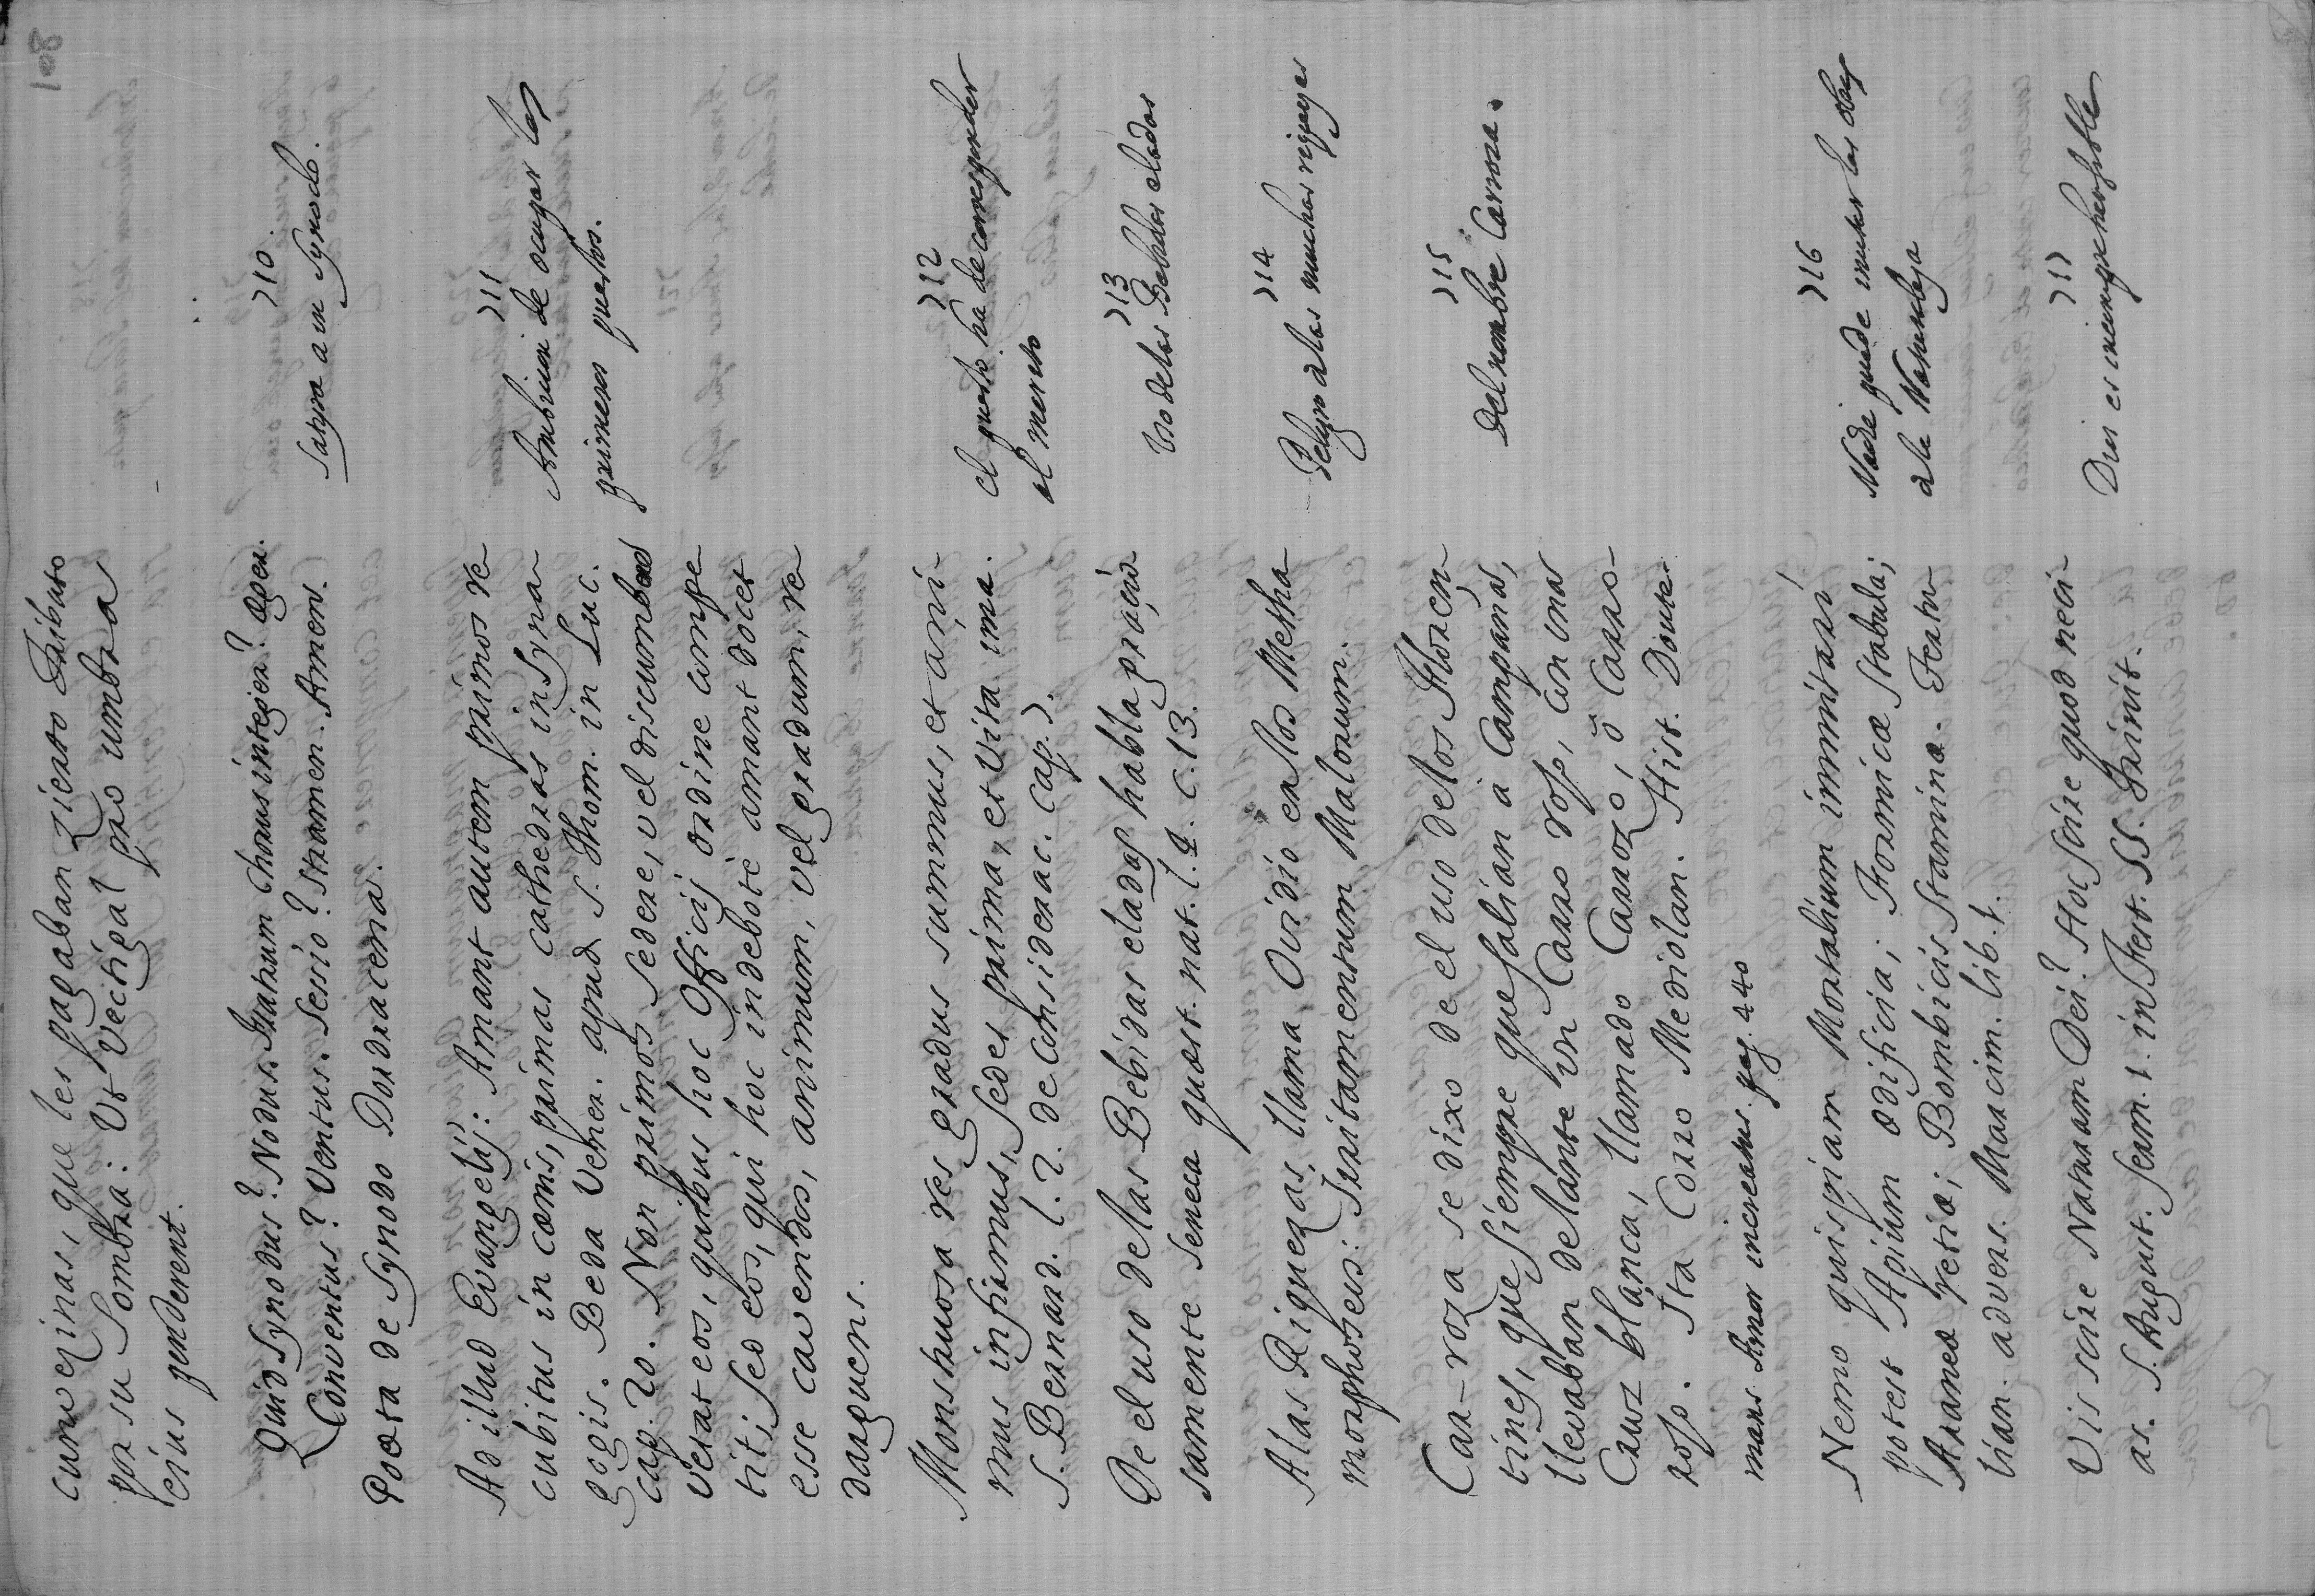 108
curwezinas, que les pagaban zierto Tributo
por su Sombra: Ut vectigal pro umbra
eius penderent.
710.
Satyra a un Synodo.
Quid Synodus? Nodus. Patrum Chorus integer? Æger.
Conventus? Ventus. Sessio? Stramen. Amen.
Poeta de Synodo Dordracena.
711
Ambicion de ocupar los
primeros puestos.
Ad illud Evangelij: Amant autem primos re
cubitus in cœnis, primas cathedras in Syna
gogis. Beda Vener. apud S. Thom. in Luc.
cap. 20. Non primos sedere, vel discumbere
vetat eos, quibus hoc officij ordine compe
tit; sed eos, qui hoc indebitè amant docet
esse cavendos, animum, vel gradum, re
darguens.
712
el puesto ha de corresponder
al merito
Monstruosa res gradus summus, et ani
mus infimus, sedes prima, et vita ima.
S. Bernard. l. 2. de considerac. cap. 7.
713
Uso de las Bebidas eladas
De el uso de las Bebidas eladas habla graçio
samente Seneca quæst. nat. l. 4. c. 13.
714
Peligro a las muchas riquezas
A las Riquezas, llama Ovidio en los Metha
morphoseus: Irritamentum Malorum.
715
Del nombre Carroza.
Car-roza se dixo de el uso de los Floren
tines, que siempre que salian a Campanar,
llevaban delante un Carro rojo, con una
Cruz blanca, llamado Carozo, ò Carro
rojo. Ita Corio Mediolan. Hist. Doute-
mans. Amor increatus. pag. 440
716
Nadie puede imitar las obras
a la Naturaleza
Nemo quispiam Mortalium immitari
potest Apium ædificia; Formicæ stabula;
Araneæ retia; Bombicis stamina. Tertu
lian. advers. Marcim. lib. 1.
717
Dios es incomprehensible
Vis scire Naturam Dei? Hoc scire quod nesci-
as. S. August. Serm. 1. in Fest. SS. Trinit.